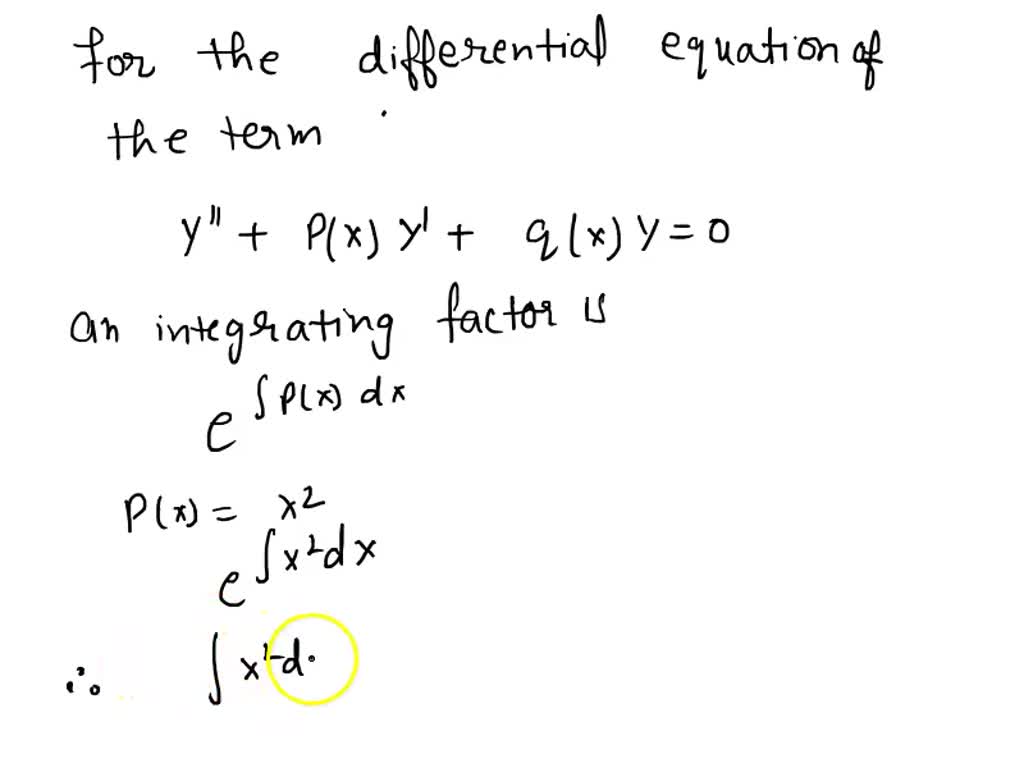 for the differential equation of
the term
y'' + P(x) y' + q(x) y = 0
an integrating factor is
e^∫P(x) dx
P(x) = x²
e^∫x²dx
∴ ∫x²d